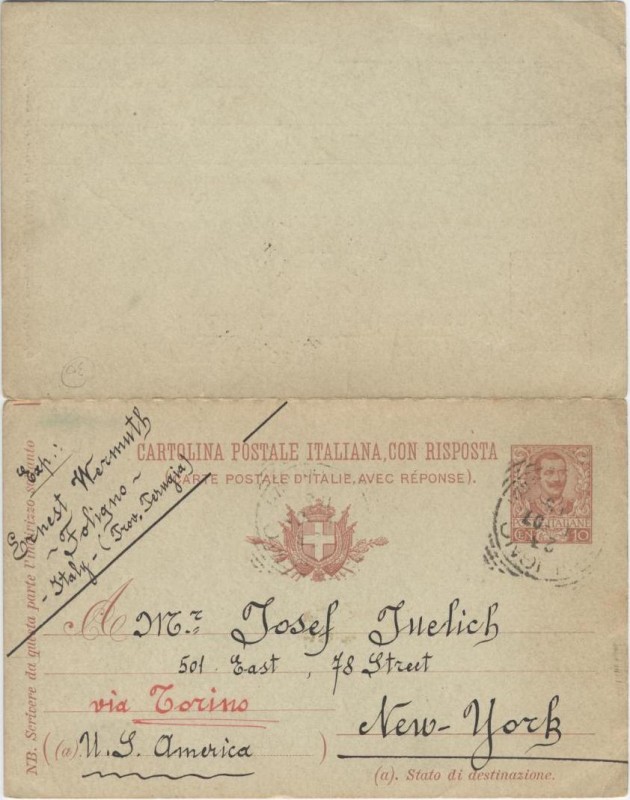 CARTOLINA POSTALE ITALIANA, CON RISPOSTA
(CARTE POSTALE D'ITALIE, AVEC RÉPONSE).
Exp.:
Ernest Wermuth
- Foligno -
- Italy - (Prov. Perugia)
CENT. 10
A Mr. Josef Juelich
501 East, 78 Street
via Torino
New-York
(a) U. S. America )
(a). Stato di destinazione.
NB. Scrivere da questa parte l'indirizzo soltanto